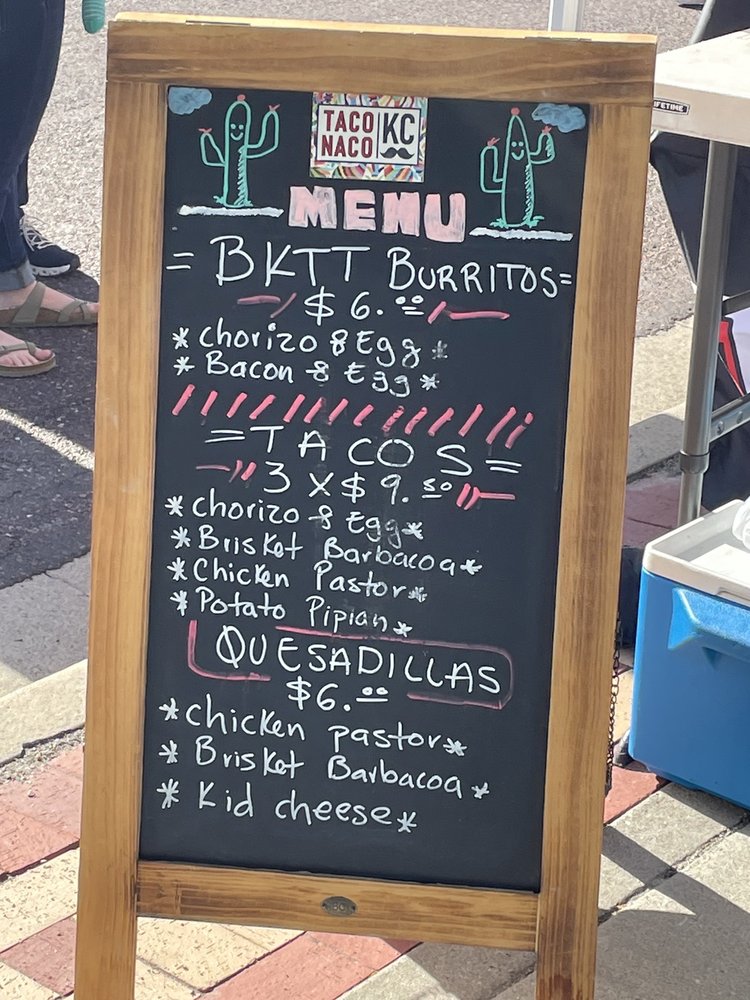 TACO NACO KC
MENU
= BKTT BURRITOS =
$6.00
* Chorizo & Egg *
* Bacon & Egg *
= TACOS =
3 X $9.50
* Chorizo & Egg *
* Brisket Barbacoa *
* Chicken Pastor *
* Potato Pipian *
QUESADILLAS
$6.00
* Chicken pastor *
* Brisket Barbacoa *
* Kid cheese *
LIFETIME